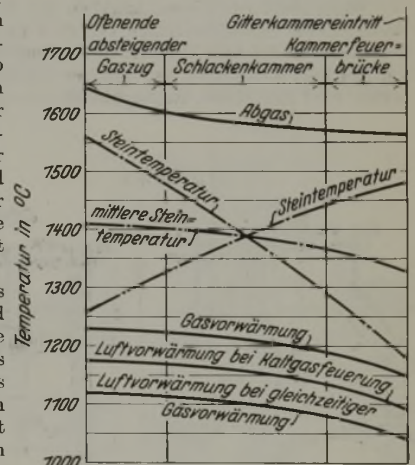 Ofenende
absteigender
Gaszug
Schlackenkammer
Gitterkammereintritt
Kammerfeuer=
brücke
Temperatur in °C
1700
1600
1500
1400
1300
1200
1100
1000
Abgas
Steintemperatur
Steintemperatur
mittlere Stein=
temperatur
Gasvorwärmung
Luftvorwärmung bei Kaltgasfeuerung
Luftvorwärmung bei gleichzeitiger
Gasvorwärmung